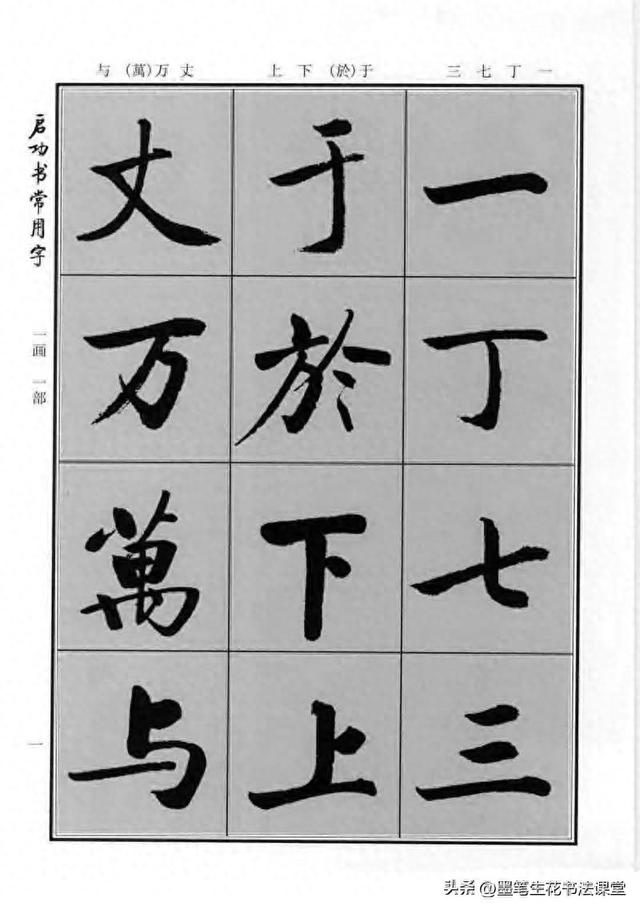 与 (萬)万 丈
上 下 (於)于
三 七 丁 一
启功书常用字
一画 一部
一
丁
七
三
于
於
下
上
丈
万
萬
与
一
头条 @墨笔生花书法课堂